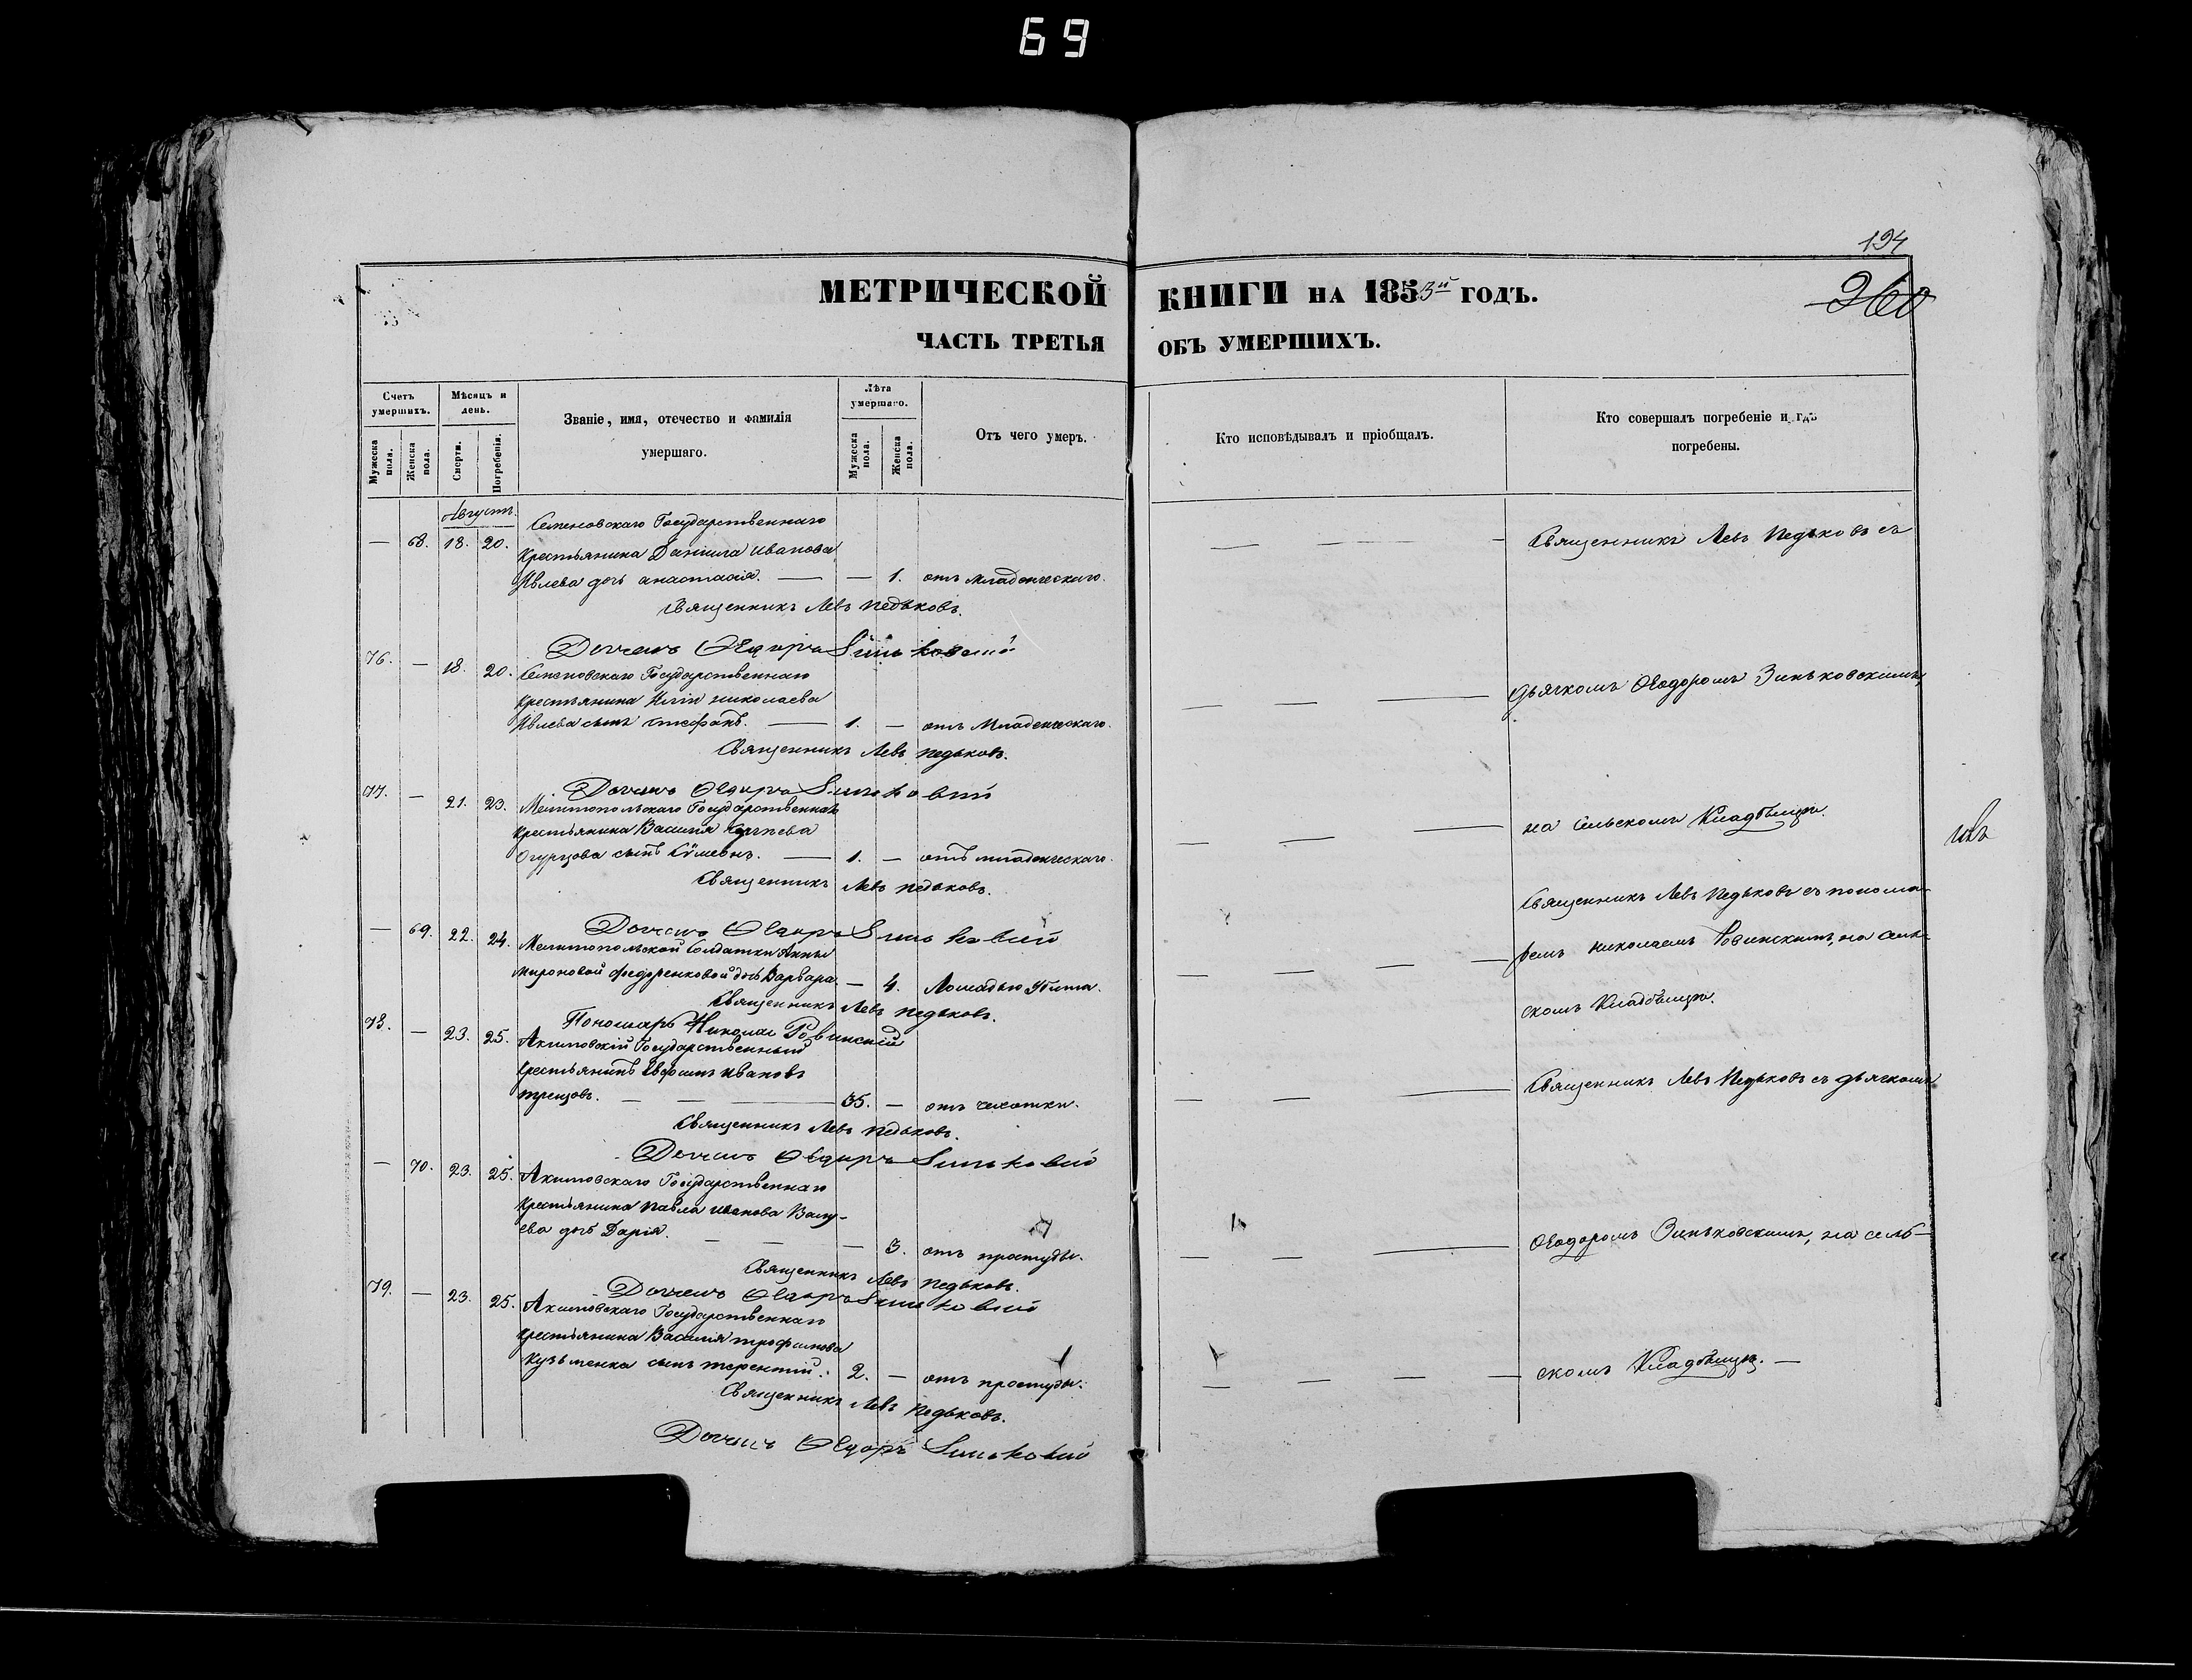 69
194
260
МЕТРИЧЕСКОЙ КНИГИ НА 1853й ГОДЪ.
ЧАСТЬ ТРЕТЬЯ ОБЪ УМЕРШИХЪ.
Счетъ умершихъ.
Мужеска пола.
Женска пола.
Мѣсяцъ и день.
Смерти.
Погребенія.
Званіе, имя, отечество и фамилія
умершаго.
Лѣта умершаго.
Мужеска пола.
Женска пола.
Отъ чего умеръ.
Кто исповѣдывалъ и пріобщалъ.
Кто совершалъ погребеніе и гдѣ
погребены.
Августъ.
— 68. 18. 20. Семеновскаго Государственнаго
Крестьянина Даніила Иванова
Ивлева дочь анастасія. — — 1. отъ младенческаго.
Священникъ Левъ Педьковъ.
76. — 18. 20. Семеновскаго Государственнаго
Крестьянина Иліи николаева
Ивлева сынъ стефанъ. — 1. — отъ Младенческаго.
Священникъ Левъ Педьковъ.
77. — 21. 23. Мелитопольскаго Государственнаго
Крестьянина Василія
Огурцова сынъ Сумеонъ. — 1. — отъ младенческаго.
Священникъ Левъ Педьковъ.
— 69. 22. 24. Мелитопольской Солдатки Анны
Мироновой Федоренковой дочь Варвара. — 4. Лошадью Убита.
Священникъ Левъ Педьковъ.
Пономарь Николай Ровинскій
78. — 23. 25. Акимовскій Государственный
Крестьянинъ Ивановъ
— 35. — отъ чахотки.
Священникъ Левъ Педьковъ.
— 70. 23. 25. Акимовскаго Государственнаго
Крестьянина Павла Иванова Валу-
ева дочь Дарія. — — — 3. отъ простуды.
Священникъ Левъ Педьковъ.
79. — 23. 25. Акимовскаго Государственнаго
Крестьянина Василія трофимова
Кузьменка сынъ терентій. 2. — отъ простуды.
Священникъ Левъ Педьковъ.
Священникъ Левъ Педьковъ съ
дьячкомъ Ѳеодоромъ Зиньковскимъ,
на Сельскомъ Кладбищѣ.
Священникъ Левъ Педьковъ съ понома-
ремъ николаемъ Ровинскимъ, на Сель-
скомъ Кладбищѣ.
Священникъ Левъ Педьковъ съ дьячкомъ
Ѳеодоромъ Зиньковскимъ, на сель-
скомъ Кладбищѣ. —